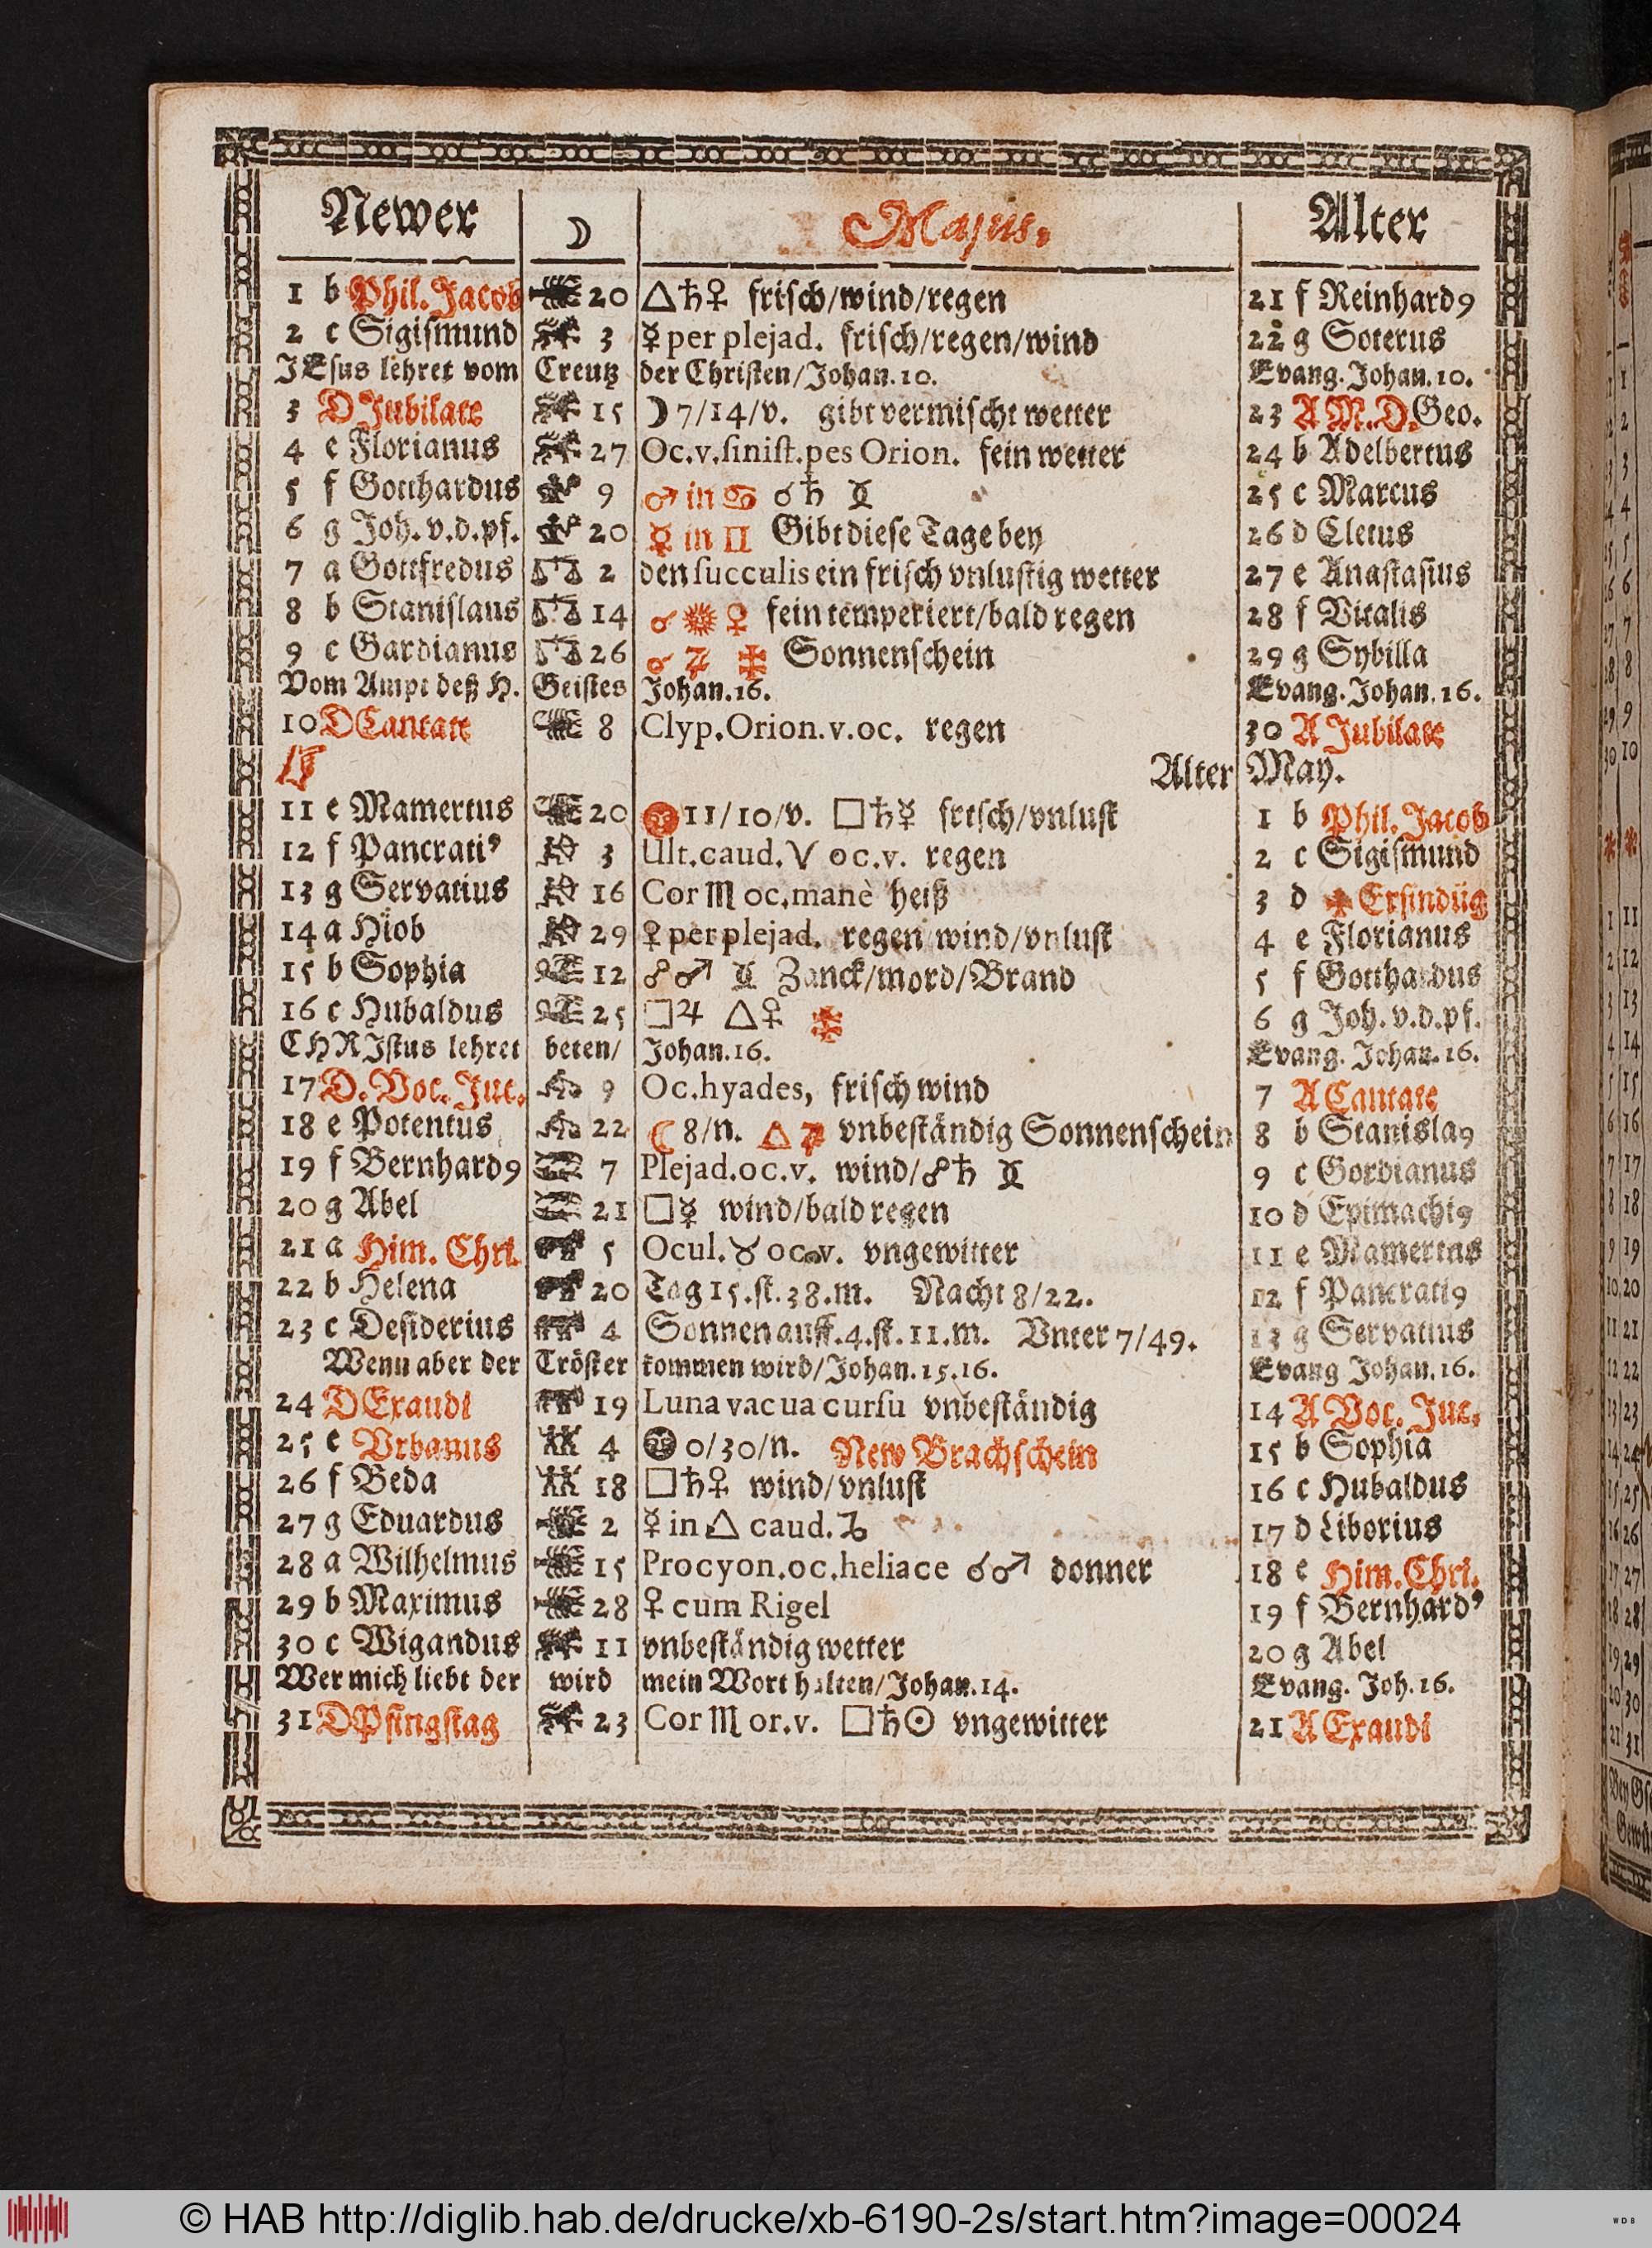 Newer ☽ Majus. Alter
1 b Phil. Jacob 20 △♄♀ frisch/wind/regen 21 f Reinhard9
2 c Sigismund 3 ☿ per plejad. frisch/regen/wind 22 g Soterus
JEsus lehret vom Creutz der Christen/Johan.10. Evang. Johan. 10.
3 D Jubilate 15 ☽ 7/14/v. gibt vermischt wetter 23 A M.D. Geo.
4 e Florianus 27 Oc.v.sinist.pes Orion. fein wetter 24 b Adelbertus
5 f Gotthardus 9 ♂ in ♋ ☌♄ 25 c Marcus
6 g Joh. v.d.pf. 20 ☿ in ♊ Gibt diese Tage bey 26 d Cletus
7 a Gottfredus 2 den succulis ein frisch vnlustig wetter 27 e Anastasius
8 b Stanislaus 14 ☌ ☀ ♀ fein temperiert/bald regen 28 f Vitalis
9 c Gardianus 26 ☌ ♃ Sonnenschein 29 g Sybilla
Vom Ampt deß H. Geistes Johan.16. Evang. Johan. 16.
10 D Cantate 8 Clyp.Orion.v.oc. regen 30 A Jubilate
Alter May.
11 e Mamertus 20 11/10/v. □♄☿ frisch/vnlust 1 b Phil. Jacob
12 f Pancrati9 3 Ult.caud.V oc.v. regen 2 c Sigismund
13 g Servatius 16 Cor ♏ oc.manè heiß 3 d ✠ Erfindüg
14 a Hiob 29 ♀ per plejad. regen wind/vnlust 4 e Florianus
15 b Sophia 12 ☍♂ Zanck/mord/Brand 5 f Gotthardus
16 c Hubaldus 25 □♃ △♀ 6 g Joh. v.d.pf.
CHRJstus lehret beten/ Johan.16. Evang. Johan. 16.
17 D. Voc. Juc. 9 Oc.hyades, frisch wind 7 A Cantate
18 e Potentus 22 ☾ 8/n. △ ♃ vnbeständig Sonnenschein 8 b Stanisla9
19 f Bernhard9 7 Plejad.oc.v. wind/☍♄ 9 c Gordianus
20 g Abel 21 □☿ wind/bald regen 10 d Epimachi9
21 a Him. Chri. 5 Ocul.♉ oc.v. vngewitter 11 e Mamertus
22 b Helena 20 Tag 15.st.38.m. Nacht 8/22. 12 f Pancrati9
23 c Desiderius 4 Sonnen auff.4.st.11.m. Vnter 7/49. 13 g Servatius
Wenn aber der Tröster kommen wird/Johan.15.16. Evang Johan. 16.
24 D Exaudi 19 Luna vacua cursu vnbeständig 14 A Voc. Juc.
25 e Vrbanus 4 0/30/n. New Brachschein 15 b Sophia
26 f Beda 18 □♄♀ wind/vnlust 16 c Hubaldus
27 g Eduardus 2 ☿ in △ caud.♑ 17 d Liborius
28 a Wilhelmus 15 Procyon.oc.heliace ☌♂ donner 18 e Him. Chri.
29 b Maximus 28 ♀ cum Rigel 19 f Bernhard9
30 c Wigandus 11 vnbeständig wetter 20 g Abel
Wer mich liebt der wird mein Wort halten/Johan.14. Evang. Joh. 16.
31 D Pfingstag 23 Cor ♏ or.v. □♄☉ vngewitter 21 A Exaudi
© HAB http://diglib.hab.de/drucke/xb-6190-2s/start.htm?image=00024